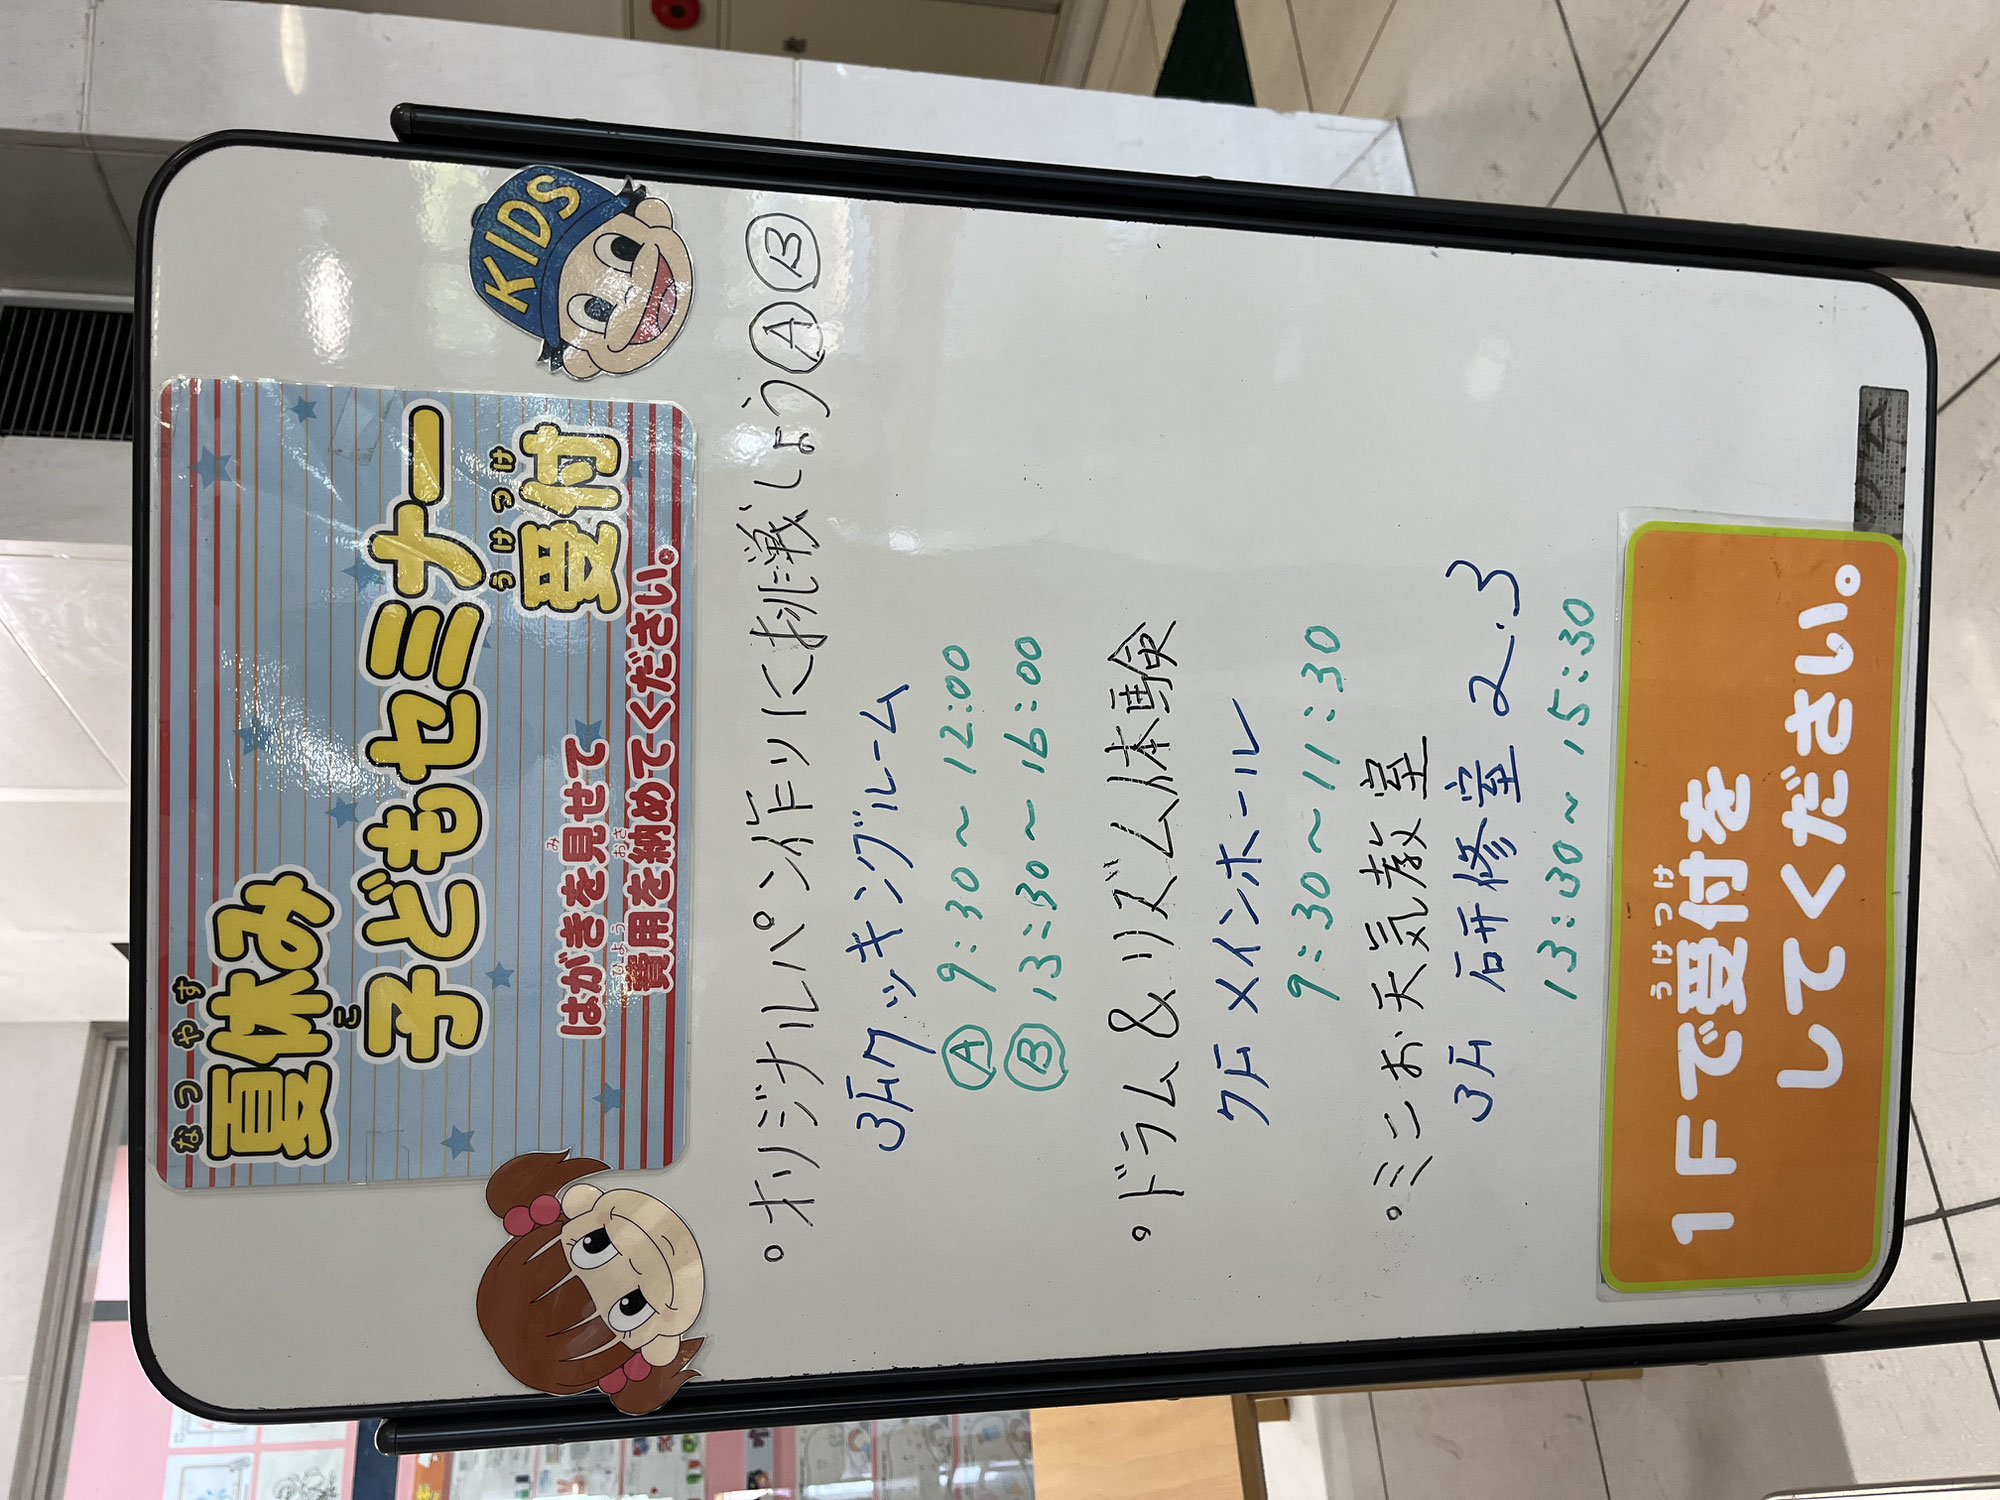 なつやす
夏休み
こ
子どもセミナー
うけつけ
受付
み
はがきを見せて
ひよう おさ
費用を納めてください。
KIDS
。オリジナルパン作りに挑戦しよう Ⓐ Ⓑ
3Fクッキングルーム
Ⓐ 9:30~12:00
Ⓑ 13:30~16:00
。ドラム&リズム体験
7F メインホール
9:30~11:30
。ミニお天気教室
3F 研修室 2.3
13:30~15:30
うけつけ
1Fで受付を
してください。